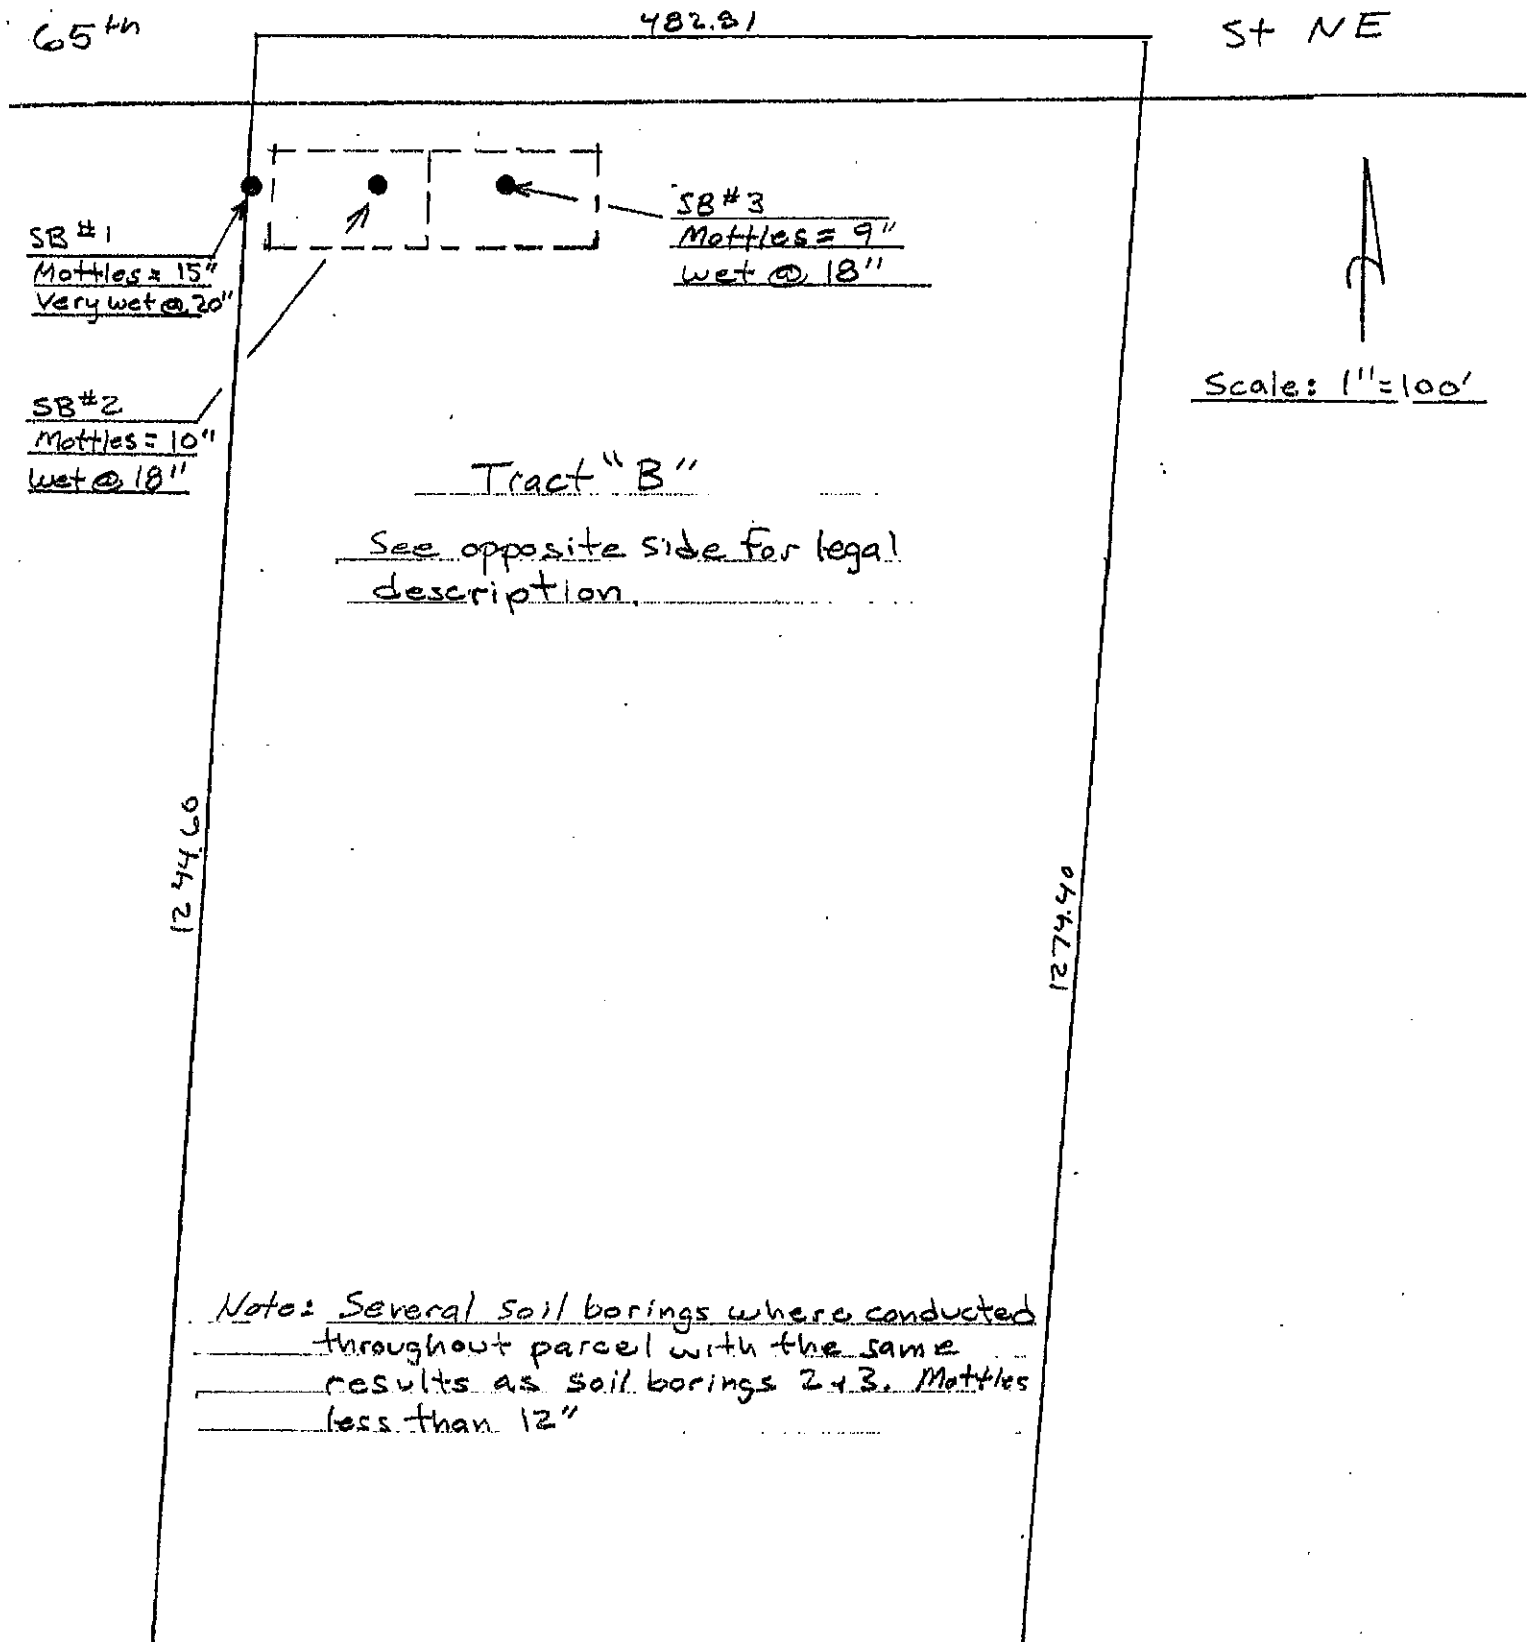 65th
482.81
St NE
SB #1
Mottles = 15"
Very wet @ 20"
SB #3
Mottles = 9"
wet @ 18"
Scale: 1"=100'
SB #2
Mottles = 10"
wet @ 18"
Tract "B"
See opposite side for legal
description.
1244.60
1274.40
Note: Several soil borings where conducted
throughout parcel with the same
results as soil borings 2 & 3. Mottles
less than 12"